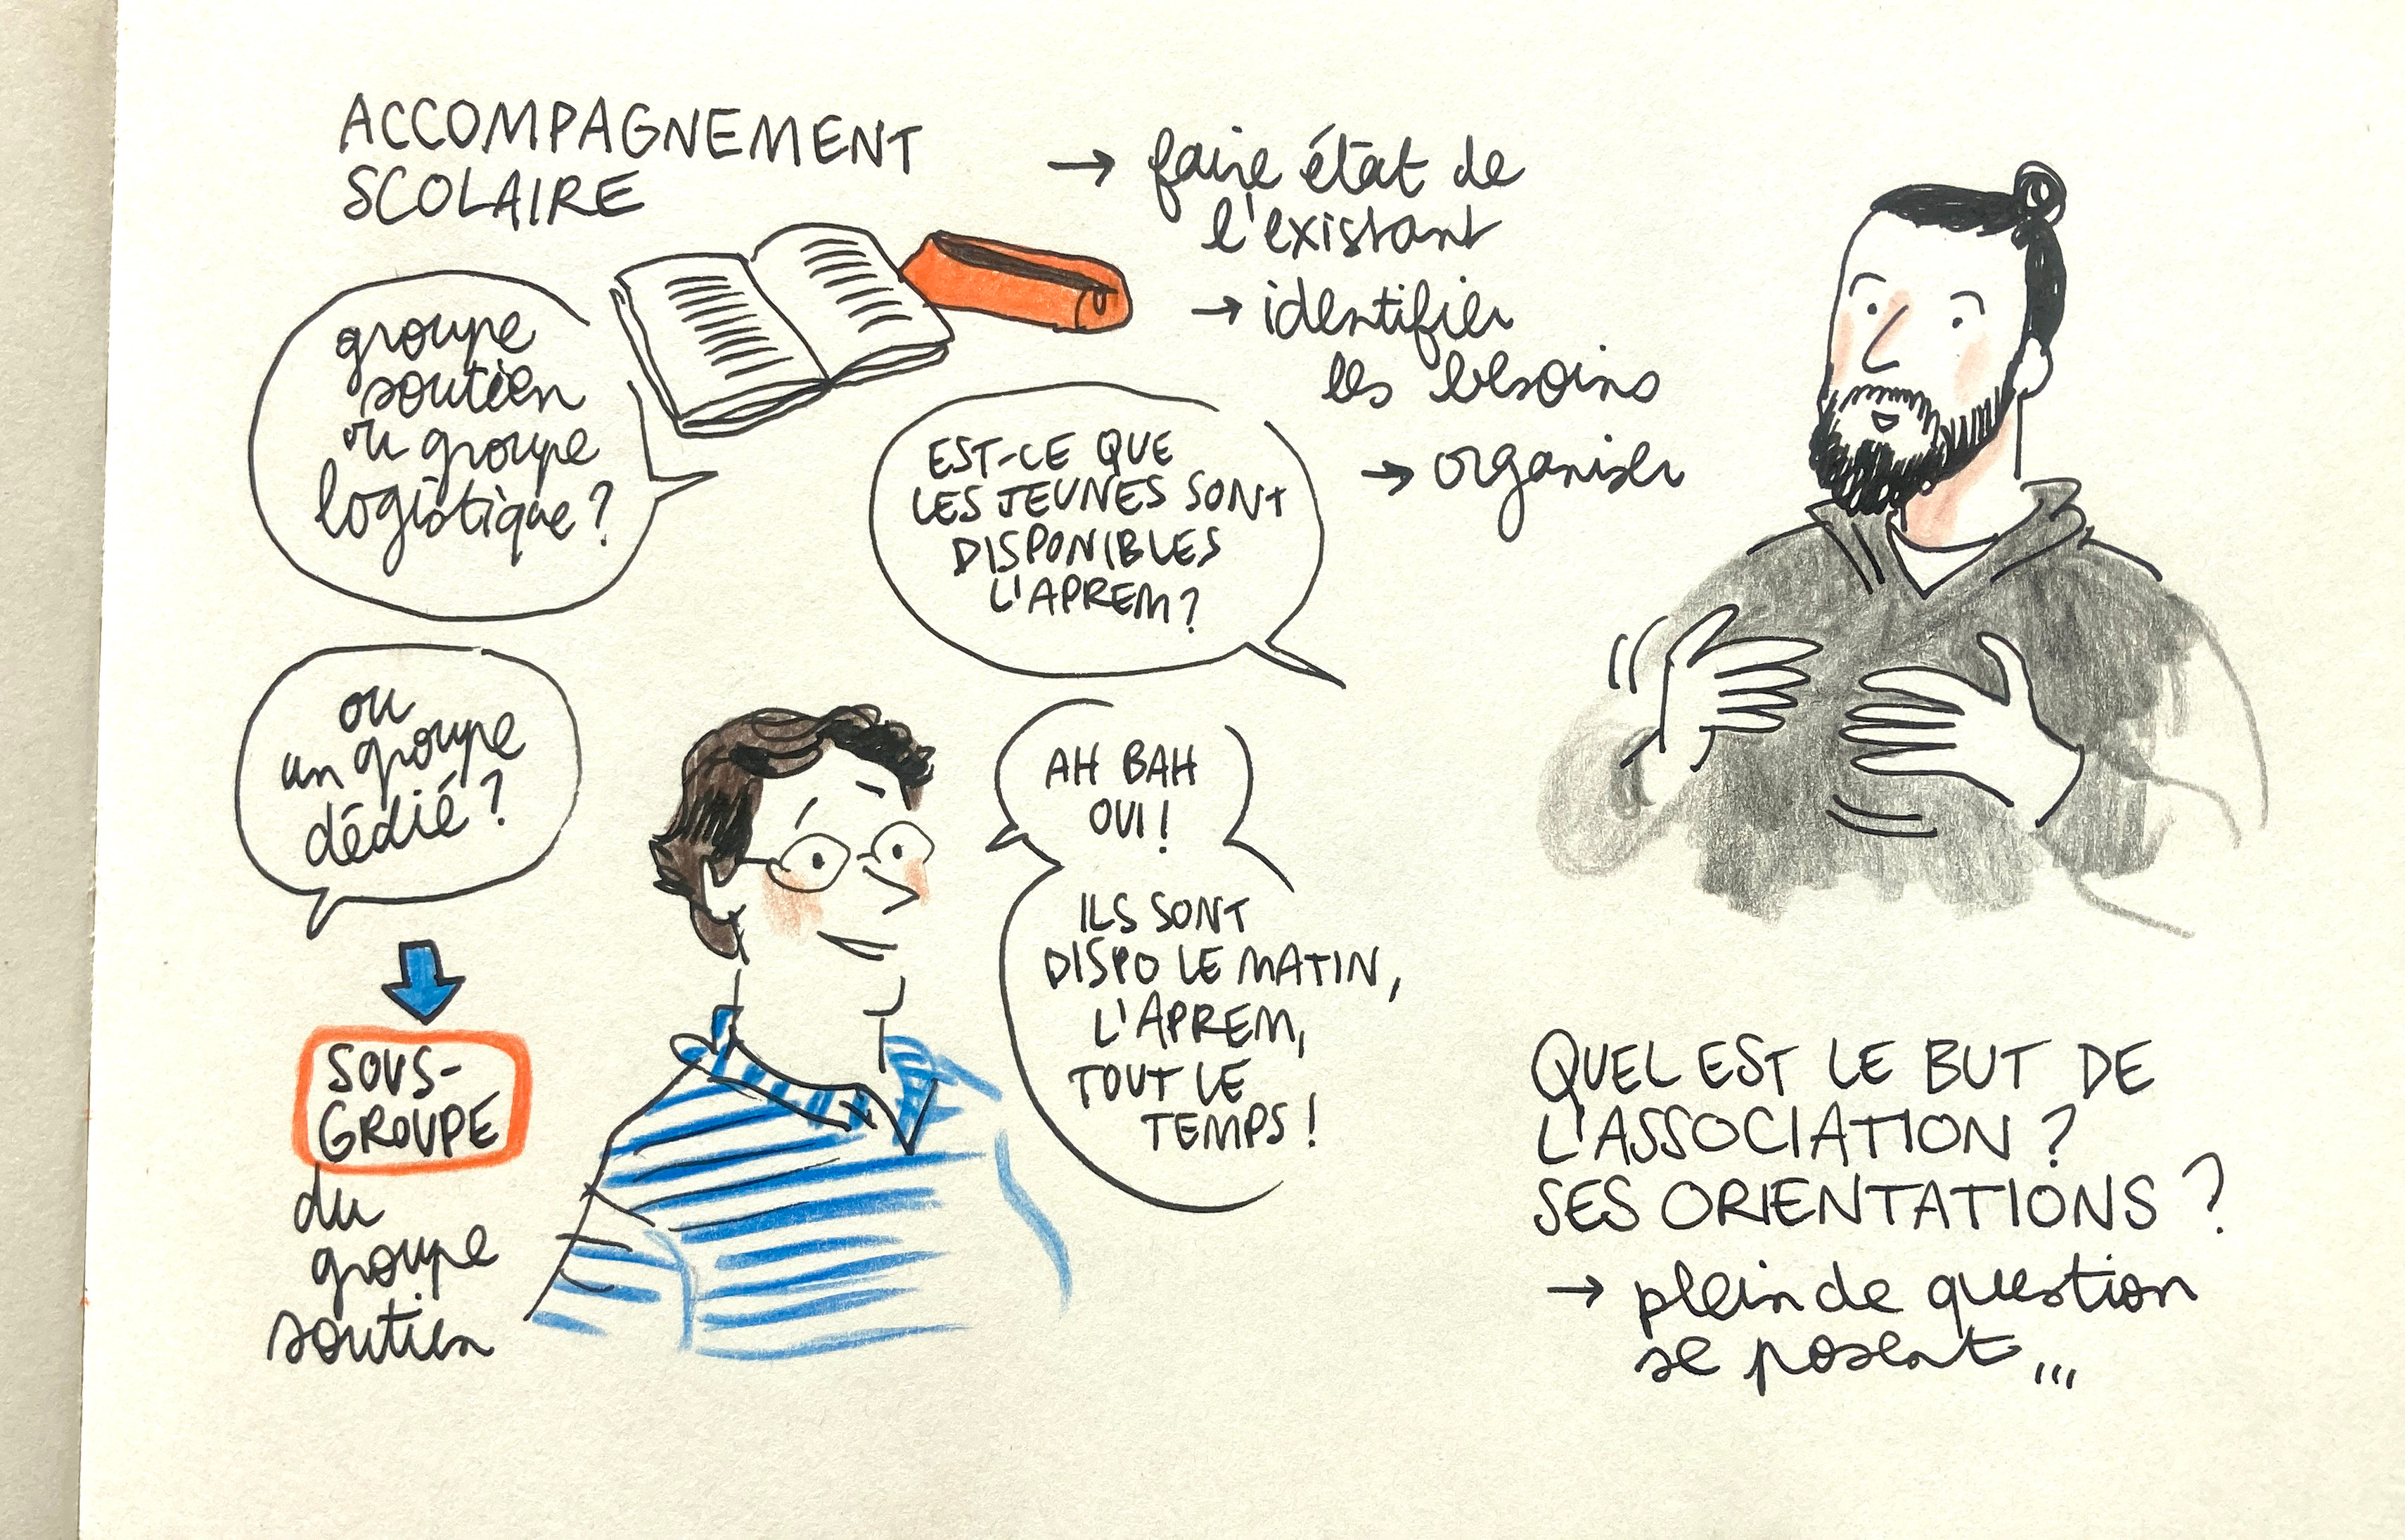 ACCOMPAGNEMENT
SCOLAIRE
→ faire état de
l'existant
→ identifier
les besoins
→ organiser
groupe
soutien
ou groupe
logistique ?
EST-CE QUE
LES JEUNES SONT
DISPONIBLES
L'APREM ?
ou
un groupe
dédié ?
SOUS-
GROUPE
du
groupe
soutien
AH BAH
OUI !
ILS SONT
DISPO LE MATIN,
L'APREM,
TOUT LE
TEMPS !
QUEL EST LE BUT DE
L'ASSOCIATION ?
SES ORIENTATIONS ?
→ plein de question
se posent...